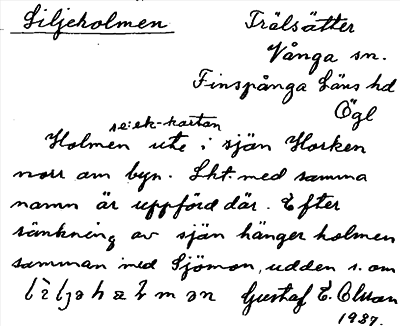 Liljeholmen
Trälsätter
Vånga sn.
Finspånga läns hd
Ögl
se: ek-kartan
Holmen ute i sjön Horken
norr om byn. Lht. med samma
namn är uppförd där. Efter
sänkning av sjön hänger holmen
samman med Sjömon, udden s. om
Gustaf E. Olson
1937.